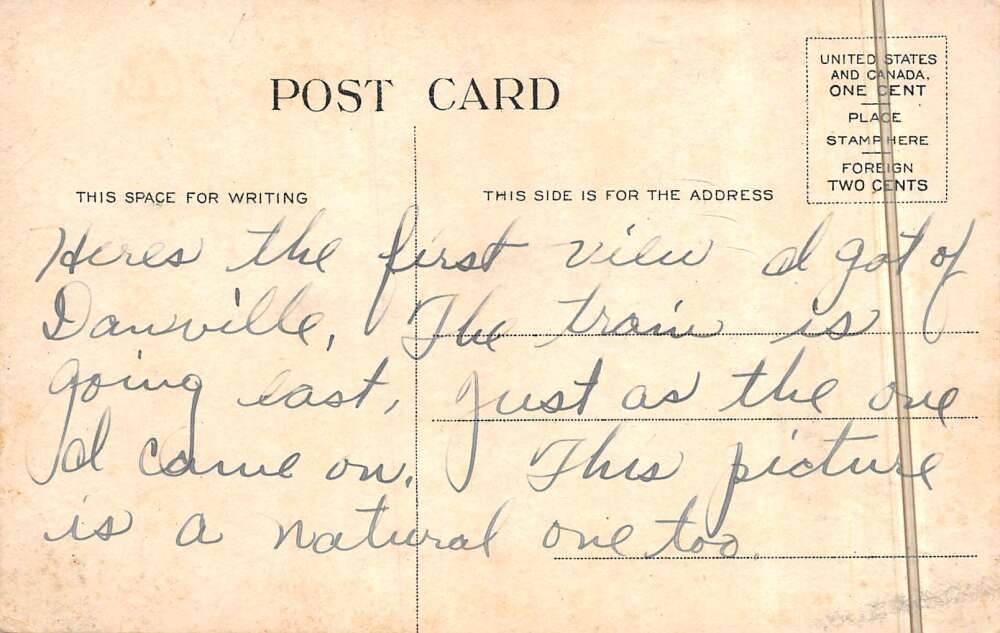 POST CARD
UNITED STATES
AND CANADA.
ONE CENT
PLACE
STAMP HERE
FOREIGN
TWO CENTS
THIS SPACE FOR WRITING
THIS SIDE IS FOR THE ADDRESS
Heres the first view I got of
Danville, The train is
going east, just as the one
I came on. This picture
is a natural one too.